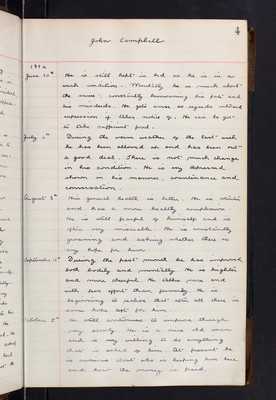 4
John Campbell
1914
June 30th He is still kept in bed as he is in a
weak condition. Mentally he is much about
the same: constantly bemoaning his fate and
his misdeeds. He gets worse as regards
expression if taken notice of. He can be got
to take sufficient food.
July 7th During the warm weather of the last week
he has been allowed up and has been out
a good deal. There is not much change
in his condition. He is very depressed
shown in his manner, countenance and
conversation.
August 8th His general health is better. He is stouter
and has a more healthy complexion.
He is still fearful of himself and is
often very miserable. He is constantly
groaning and asking whether there is
any hope for him.
September 10th During the past month he has improved
both bodily and mentally. He is brighter
and more cheerful. He talks more and
with less effort than formerly. He is
beginning to realise that after all there is
some hope left for him.
October 5th He still continues to improve though
very slowly. He is a nice old man
and is very willing to do anything
that is asked of him. At present he
is anxious about who is keeping him here
and how the money is paid.